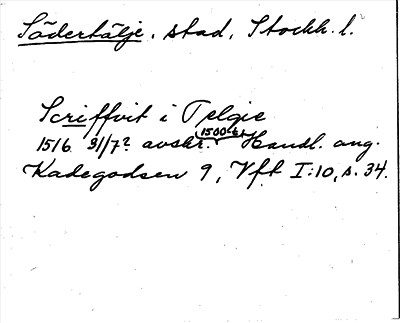 Södertälje, stad, Stockh. l.
Scriffvit i Telgie
1516 31/7? avskr. 1500-t. Handl. ang.
Kadegodsen 9, Vft I:10, s. 34.